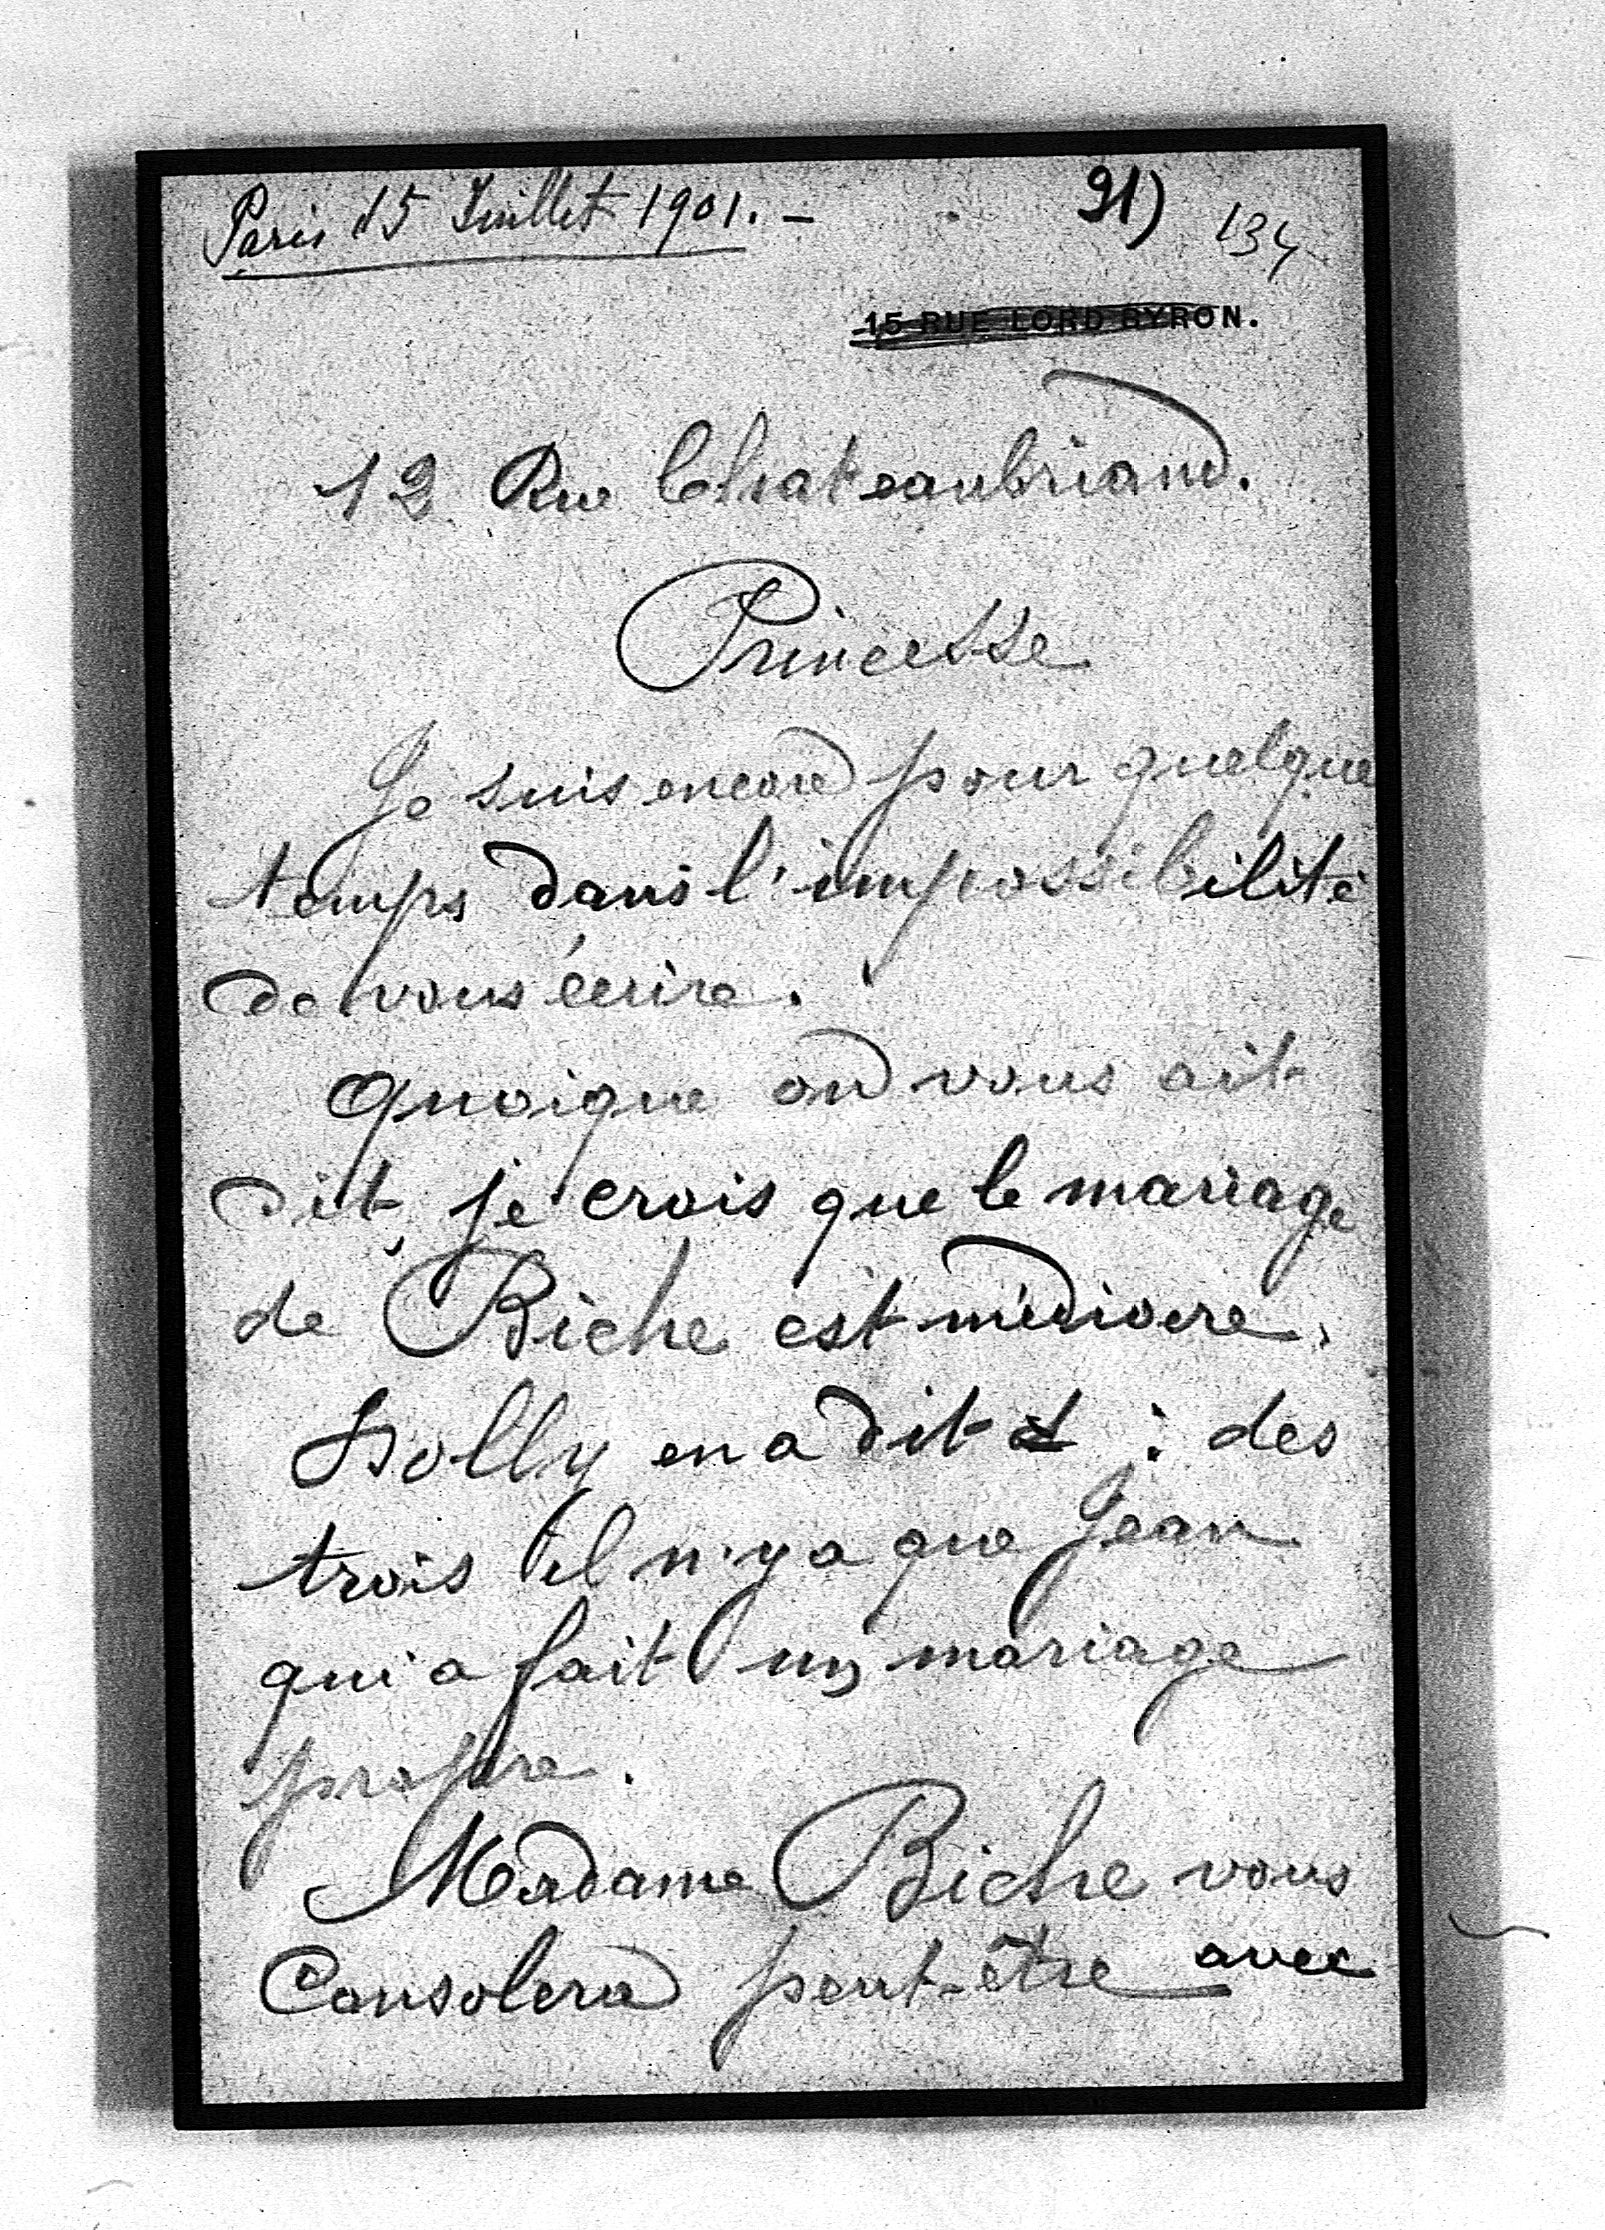 Paris 15 Juillet 1901. -
91) 134
15 RUE LORD BYRON.
12 Rue Chateaubriand.
Princesse
Je suis encore pour quelque
temps dans l'impossibilité
de vous écrire.
Quoique on vous ait
dit, je crois que le mariage
de Biche est médiocre.
Dolly en a dit : des
trois il n'y a que Jean
qui a fait un mariage
propre.
Madame Biche vous
Consolera peut-être avec